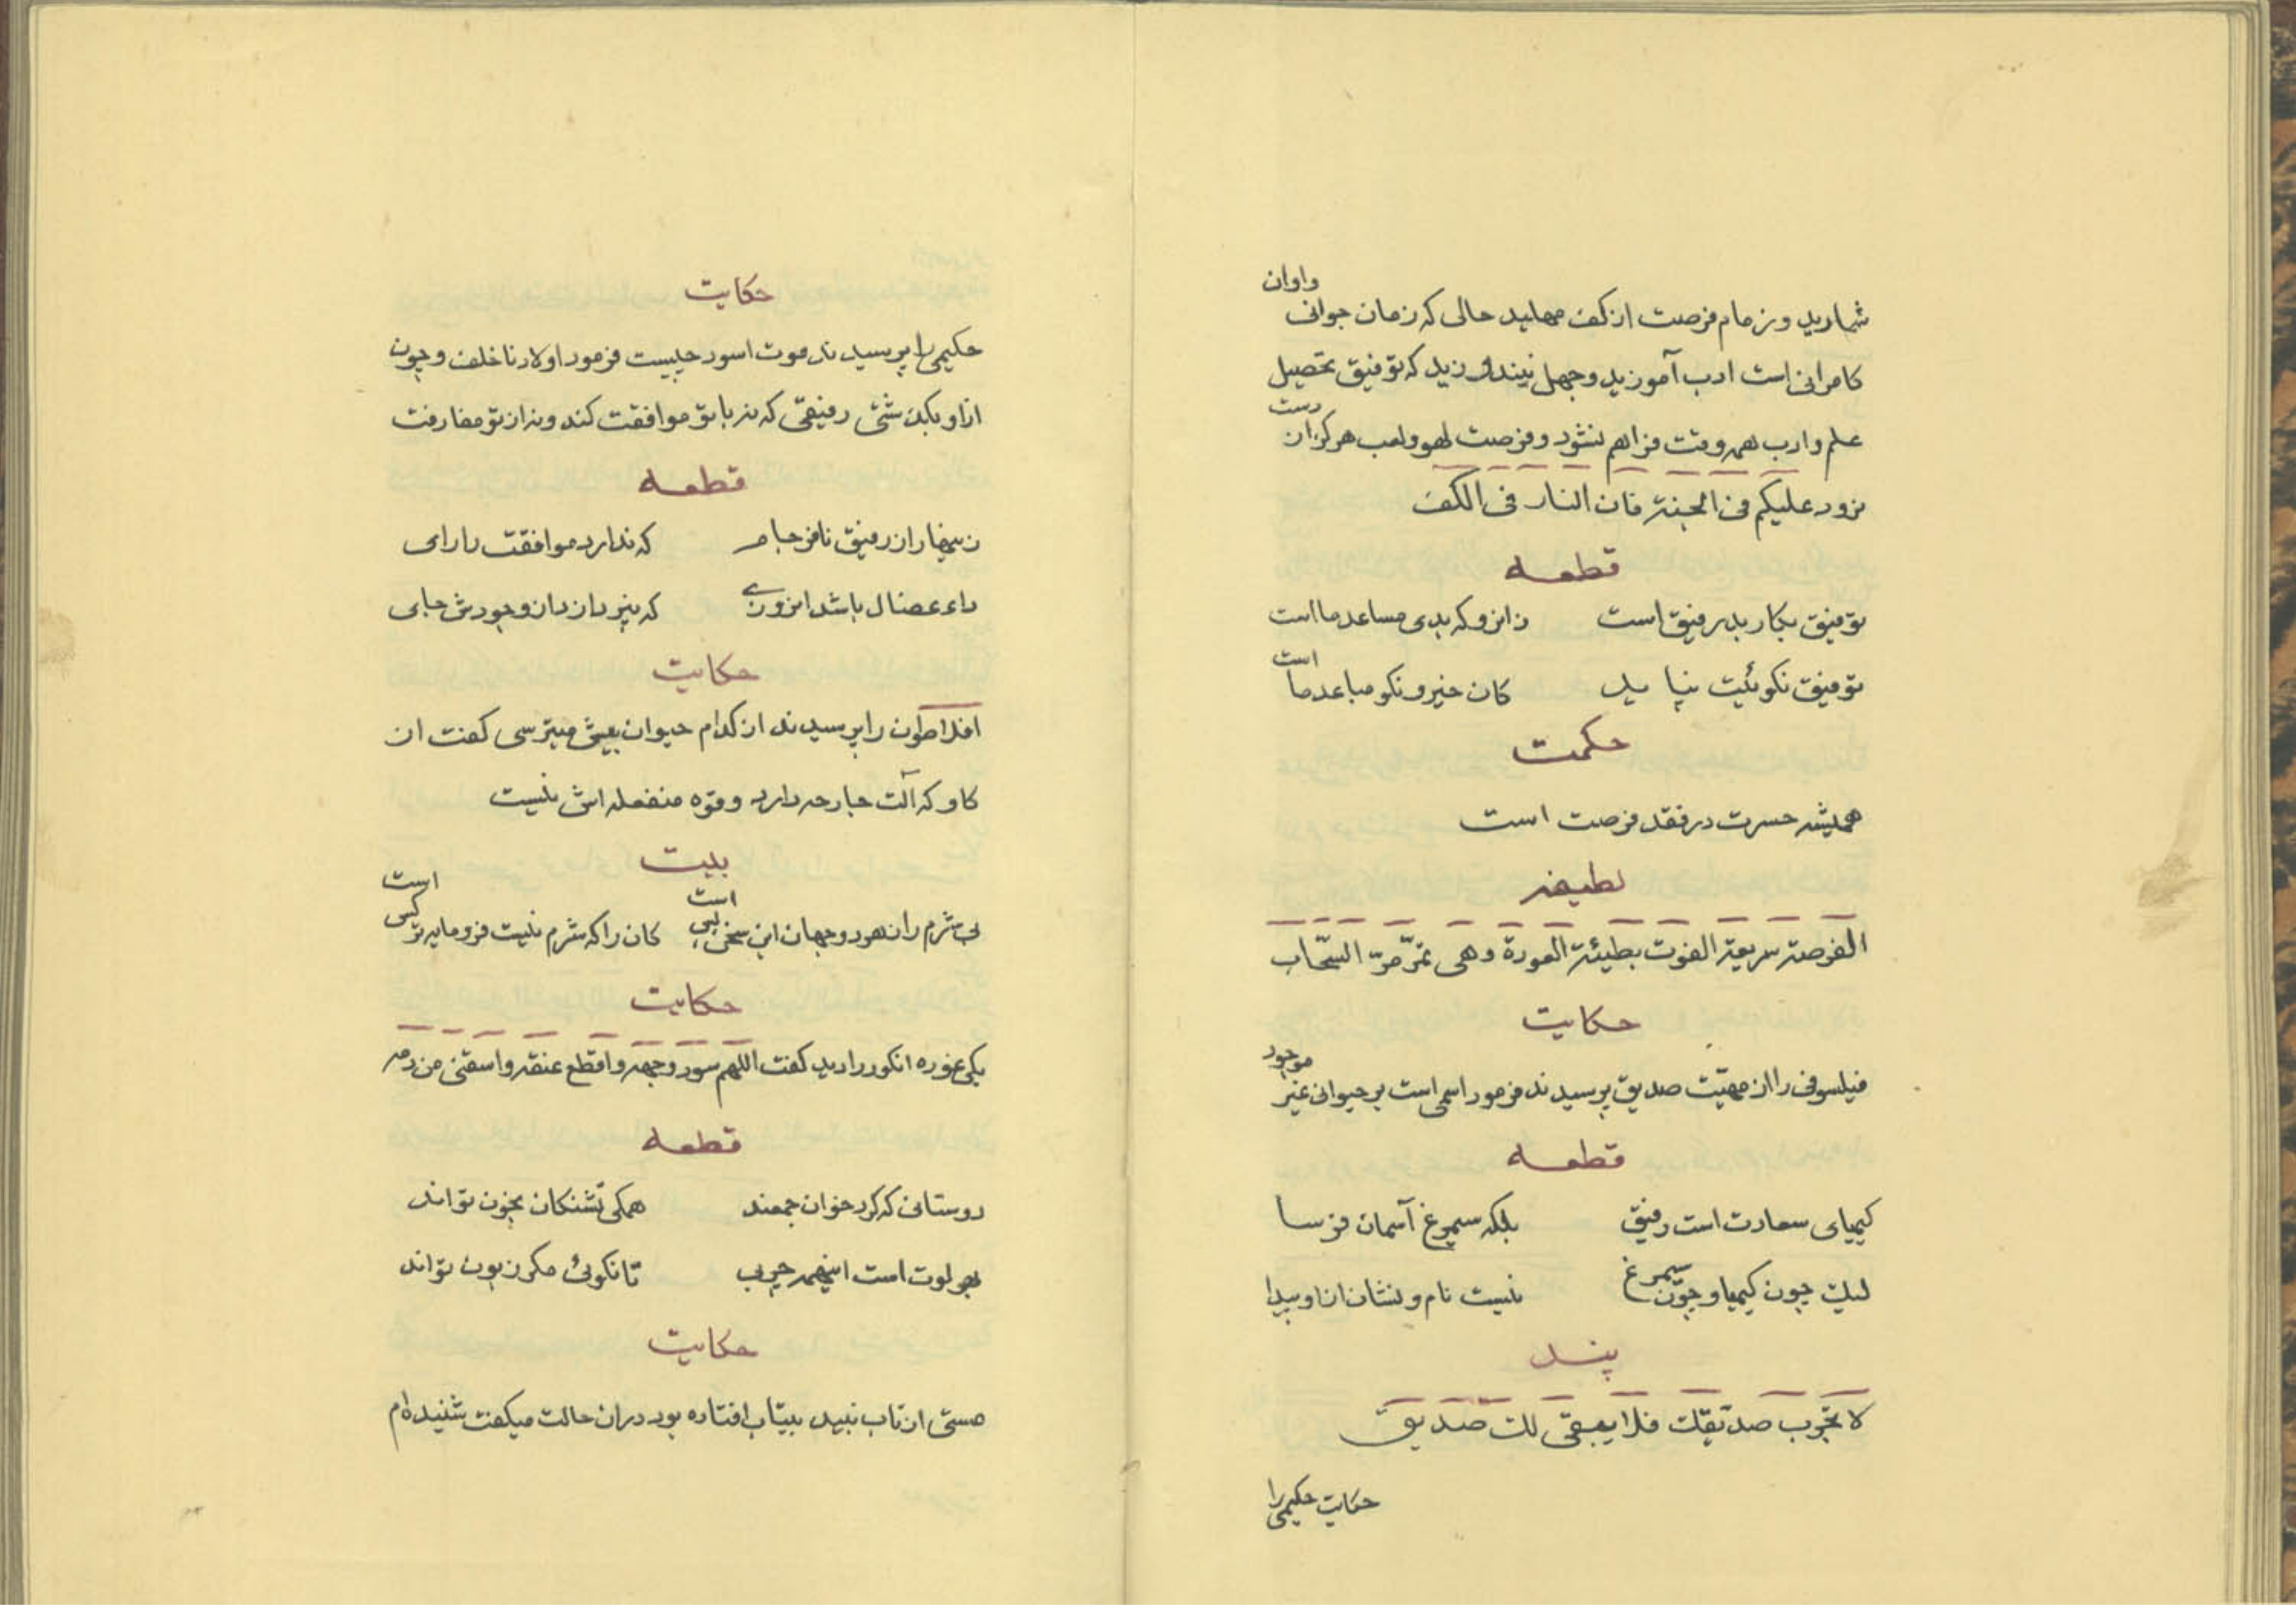 شمارید و زمام فرصت از کف مهلید حالی که زمان جوانی واوان
کامرانی است ادب آموزید وجهل نیندوزید که توفیق تحصیل
علم وادب همه وقت فراهم نشود وفرصت لهو ولعب هرکز از دست
نرود علیکم فی الجنة فان النار فی الکف
قطعه
توفیق بکار بد رفیق است زانرو که بدی مساعد ما است
توفیق نکوئیت بباید کان خیر و نکو مباعد ما است
حکمت
همیشه حسرت در فقد فرصت است
لطیفه
الفرصة سریعة الفوت بطیئة العودة وهی تمرّ مرّ السّحاب
حکایت
فیلسوفی را از مهیّت صدیق پرسیدند فرمود اسمی است بر حیوانی غیر موجود
قطعه
کیمیای سعادت است رفیق بلکه سیمرغ آسمان فرسا
لیک چون کیمیا و چون سیمرغ نیست نام و نشان از او پیدا
پند
لا تجرب صدیقک فلا یبقی لک صدیق
حکایت حکیمی را
حکایت
حکیمی را پرسیدند موت اسود چیست فرمود اولاد ناخلف و چون
از او بکذشتی رفیقی که نه با تو موافقت کند و نه از تو مفارقت
قطعه
زینهار از رفیق نافرجام که ندارد موافقت را رای
داء عضال باشد ابزونی که نپردازد از وجودش جای
حکایت
افلاطون را پرسیدند از کدام حیوان بیش میترسی کفت از
کاو که آلت جارحه دارد و قوه منفعله اش نیست
بیت
بی شرم را نه در دو جهان این سخن بسی است کان را که شرم نیست فرومایه تر کسی است
حکایت
یکی غوره انکور را دید کفت اللهم سود وجهه واقطع عنقه واسقنی من دمه
قطعه
دوستانی که کرد خوان جمعند همکی تشنکان بخون تواند
بهر لوت است اینهمه چربی تا نکوئی مکر زبون تواند
حکایت
مستی از تاب نبید بیتاب افتاده بود در ان حالت میکفت شنیده‌ام